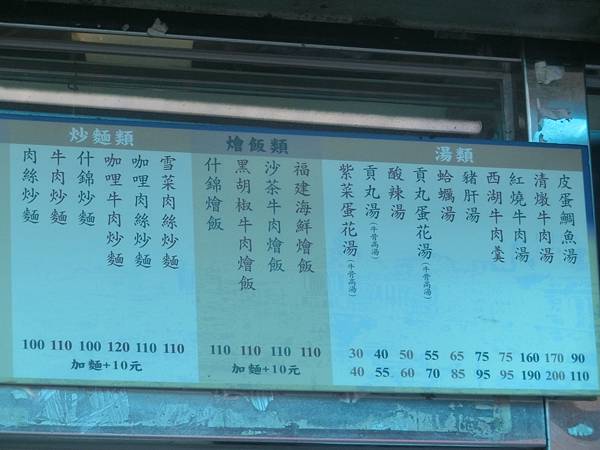 炒麵類
肉絲炒麵
牛肉炒麵
什錦炒麵
咖哩牛肉炒麵
咖哩肉絲炒麵
雪菜肉絲炒麵
100 110 100 120 110 110
加麵+10元
燴飯類
什錦燴飯
黑胡椒牛肉燴飯
沙茶牛肉燴飯
福建海鮮燴飯
110 110 110 110
加麵+10元
湯類
紫菜蛋花湯(牛骨高湯)
貢丸湯(牛骨高湯)
酸辣湯
貢丸蛋花湯(牛骨高湯)
蛤蠣湯
豬肝湯
西湖牛肉羹
紅燒牛肉湯
清燉牛肉湯
皮蛋鯛魚湯
30 40 50 55 65 75 75 160 170 90
40 55 60 70 85 95 95 190 200 110